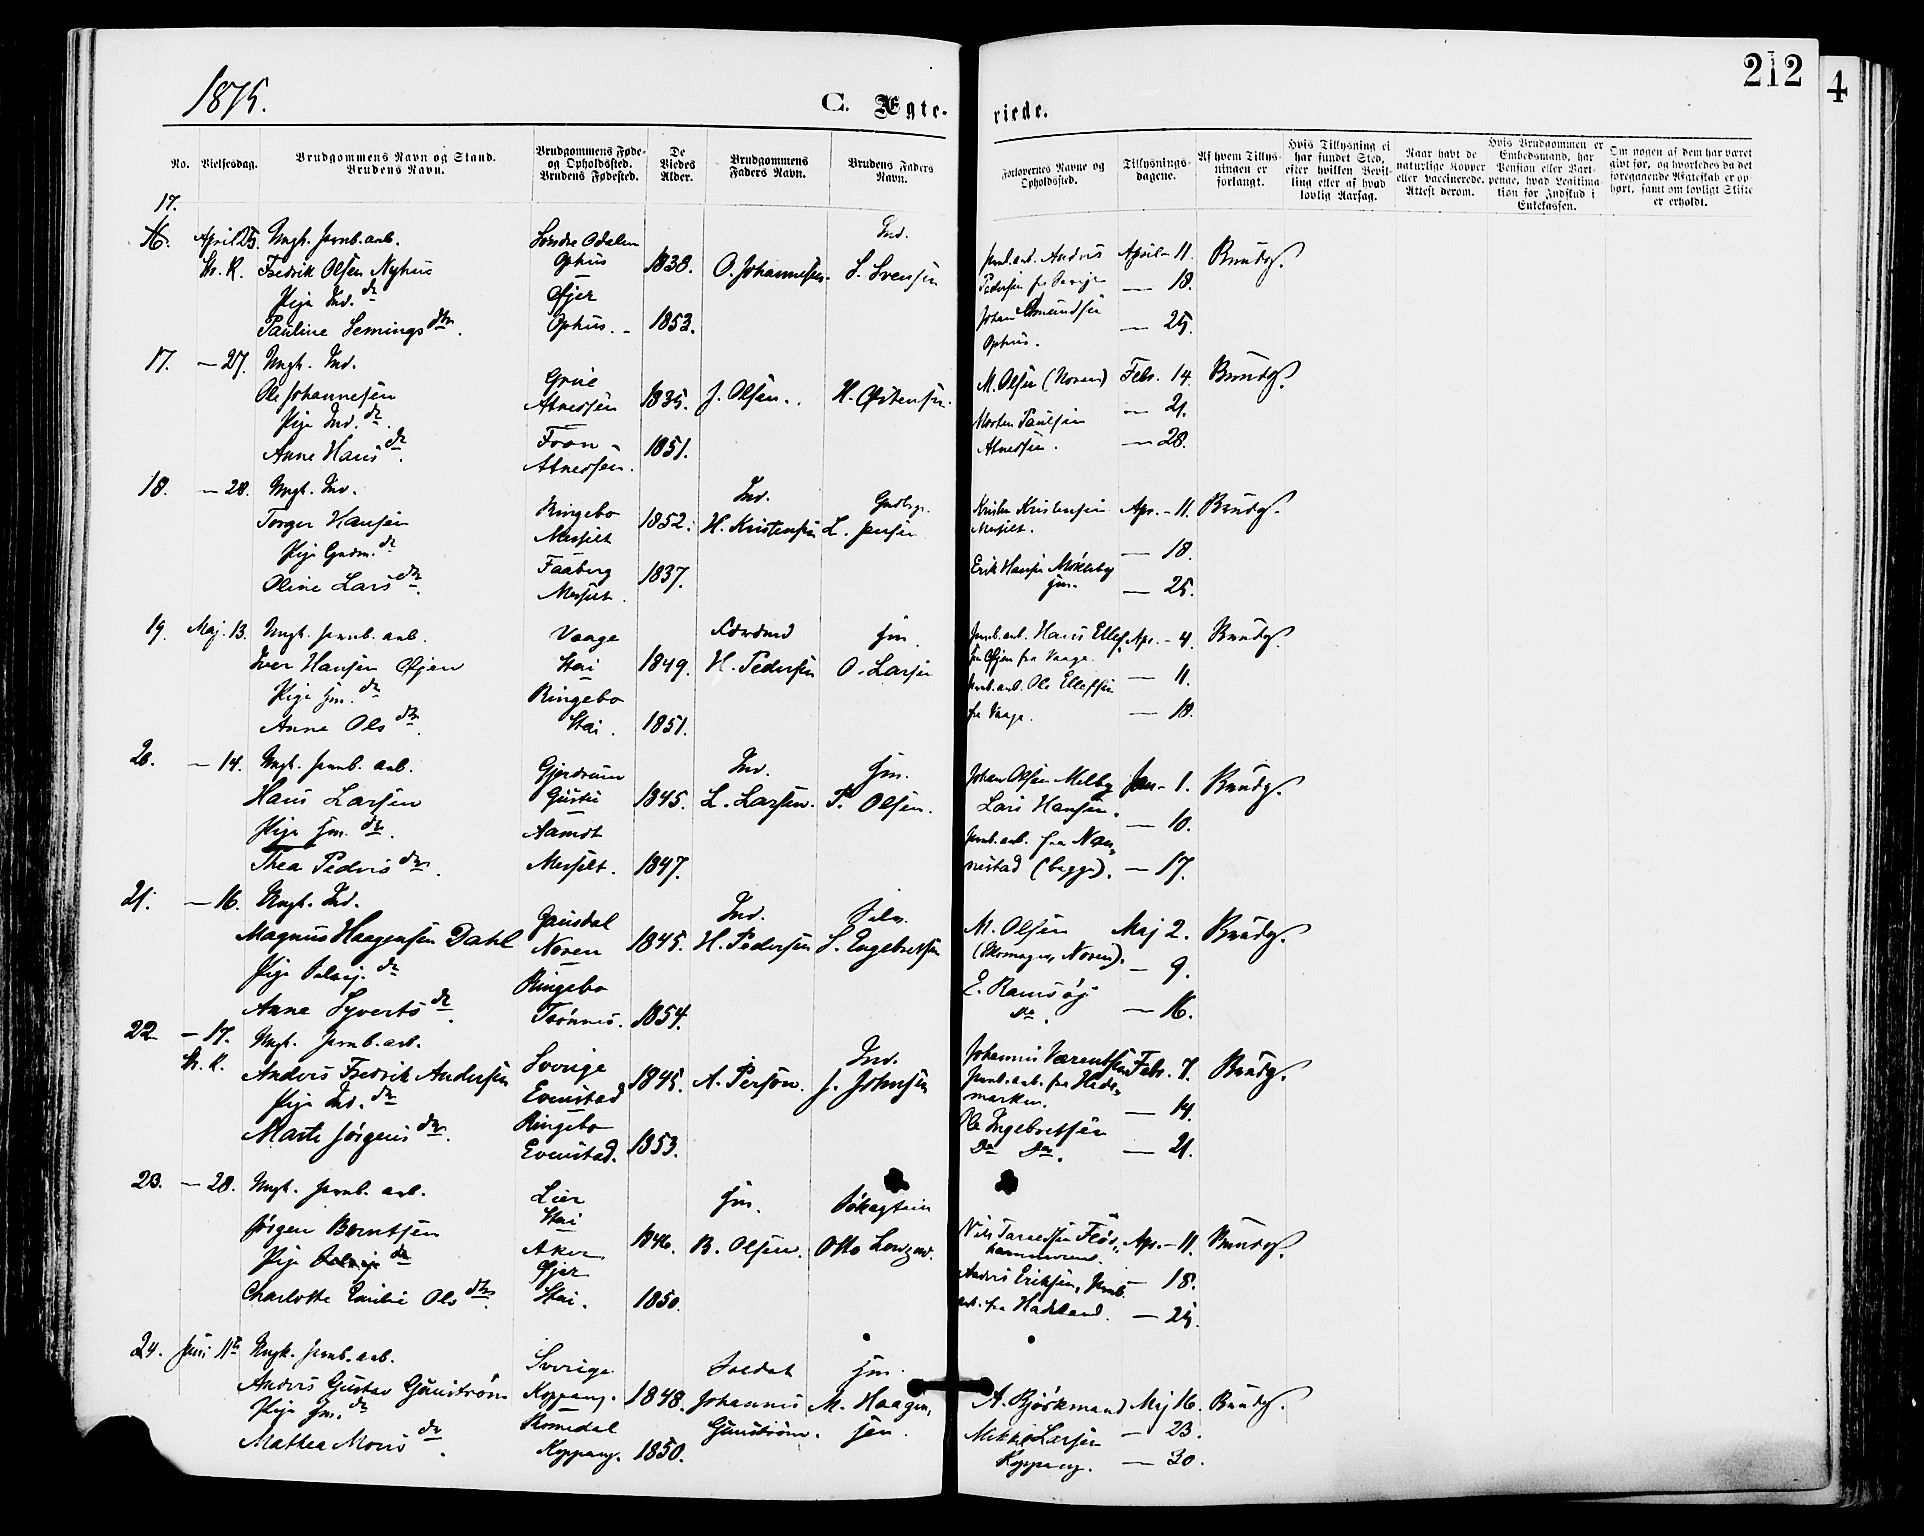 1875.
C. Ægte-
riede.
212
4
No.
Vielsesdag.
Brudgommens Navn og Stand.
Brudens Navn.
Brudgommens Føde-
og Opholdssted.
Brudens Fødested.
De
Viedes
Alder.
Brudgommens
Faders Navn.
Brudens Faders
Navn.
Forlovernes Navne og
Opholdssted.
Tillysnings-
dagene.
Af hvem Tillys-
ningen er
forlangt.
Hvis Tillysning ei
har fundet Sted,
efter hvilken Bevil-
ling eller af hvad
lovlig Aarsag.
Naar havt de
naturlige Kopper
eller vaccinerede.
Attest derom.
Hvis Brudgommen er
Embedsmand, har
Pension eller Vart-
penge, hvad Legitima-
tion for Indskud i
Enkekassen.
Om nogen af dem har været
givt før, og hvorledes da det
foregaaende Ægteskab er op-
hørt, samt om lovligt Skifte
er erholdt.
17.
16. April 25. Ungk. Jernb.arb. Søndre Odalen Ind. Jernb.arb. Anders April - 11. Brudg.
St. K. Fredrik Olsen Nyhus Ophus 1838. O. Johannesen. S. Svensen Pedersen fr Sverige — 18.
Pige Ind. dr Øjer Johan Amundsen
Pauline Lemings dtr. Ophus. 1853. Ophus. — 25.
17. — 27. Ungk. Ind. Grue M. Olsen (Noren) Febr. 14. Brudg.
Ole Johannesen Atnessen 1835. J. Olsen. H. Østensen. Morten Paulsen — 21.
Pige Ind. dr. Fron Atnessen. — 28.
Anne Hans dr. Atnessen. 1851.
18. — 28. Ungk. Ind. Ringebo Ind. Kristen Kristensen Apr. - 11. Brudg.
Torger Hansen Messelt 1852. H. Kristensen L. Jensen Messelt. — 18.
Pige Gaardm. dr Faaberg Erik Hansen Mykleby
Oline Lars dtr. Messelt. 1837. — 25.
19. Maj. 13. Ungk. Jernb. arb. Vaage Jernb.arb. Hans Ellef- Apr. - 4. Brudg.
Iver Hansen Øjen Stai 1849. H. Pedersen O. Larsen sen Øjen fra Vaage. — 11.
Pige dr Ringebo Jernb.arb. Ole Ellefsen
Anne Ols dtr. Stai. 1851. fr Vaage. — 18.
20. — 14. Ungk. Jernb. arb. Gjerdrum Ind. Johan Olsen Melby Jan - 1. Brudg.
Hans Larsen 1845. L. Larsen. P. Olsen. Lars Hansen. — 10.
Pige dtr. Aamot Jernb.arb. fra Nan-
Thea Peders dtr. Messelt. 1847. nestad (begge). — 17.
21. — 16. Ungk. Ind. Gausdal Ind. M. Olsen Maj 2. Brudg.
Magnus Haagensen Dahl Noren 1845. H. Pedersen S. Engebretsen (Skomager, Noren). — 9.
Pige dr Ringebo E.
Anne Syverts dr. Trønnes. 1854. Do. — 16.
22. — 17. Ungk. Jernb.arb. Sverige Ind. Johannes Varentsen Febr. 7. Brudg.
St. K. Anders Fredrik Andersen Evenstad 1845. A. Person. J. Johnsen Jernb.arb. fra Hede-
Pige Ind. dtr Ringebo marken. — 14.
Marte Jørgens dtr. Evenstad. 1853. Ole Ingebretsen
Do Do. — 21.
23. — 28. Ungk. Jernb. arb. Lier
Jørgen Berntsen Stai 1846. B. Olsen. Otto Apr. - 11. Brudg.
Pige dr Aker
Øjer Anders Eriksen, Jernb. — 18.
Charlotte Emilie Ols dtr. Stai. 1850. arb. fra Hadeland. — 25.
24. Juni 11te Ungk. Jernb.arb. Sverige Soldat
Anders Gustav Gunström Koppang. 1848. Johannes M. Haagen- A. Björkmand Maj 16. Brudg.
Pige dr Romedal Gunström. sen. Mikkel Larsen — 23.
Mathea Mons dr. Koppang. 1850. Koppang. — 30.